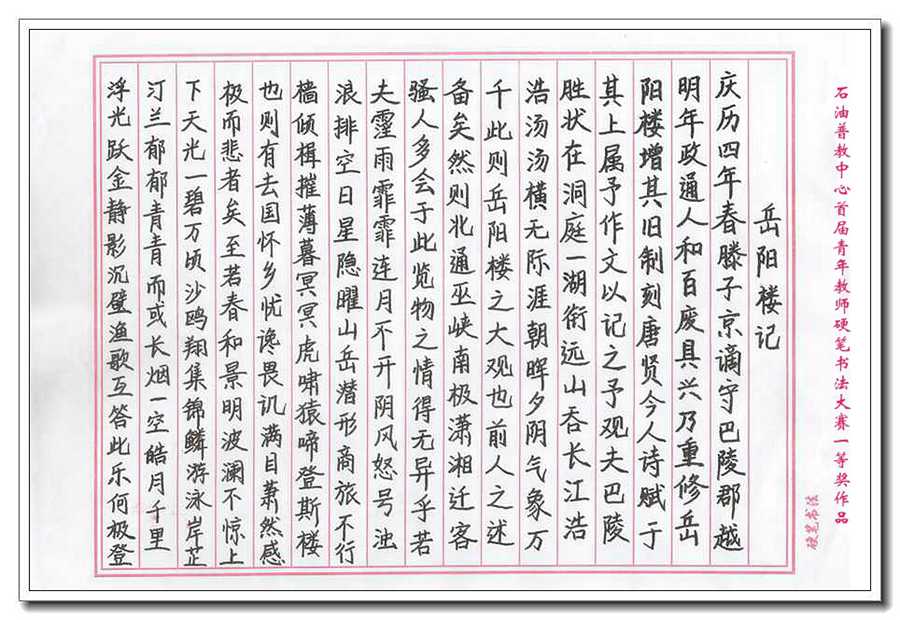 石油普教中心首届青年教师硬笔书法大赛一等奖作品
硬笔书法
岳阳楼记
庆历四年春滕子京谪守巴陵郡越
明年政通人和百废具兴乃重修岳
阳楼增其旧制刻唐贤今人诗赋于
其上属予作文以记之予观夫巴陵
胜状在洞庭一湖衔远山吞长江浩
浩汤汤横无际涯朝晖夕阴气象万
千此则岳阳楼之大观也前人之述
备矣然则北通巫峡南极潇湘迁客
骚人多会于此览物之情得无异乎若
夫霪雨霏霏连月不开阴风怒号浊
浪排空日星隐曜山岳潜形商旅不行
樯倾楫摧薄暮冥冥虎啸猿啼登斯楼
也则有去国怀乡忧谗畏讥满目萧然感
极而悲者矣至若春和景明波澜不惊上
下天光一碧万顷沙鸥翔集锦鳞游泳岸芷
汀兰郁郁青青而或长烟一空皓月千里
浮光跃金静影沉璧渔歌互答此乐何极登